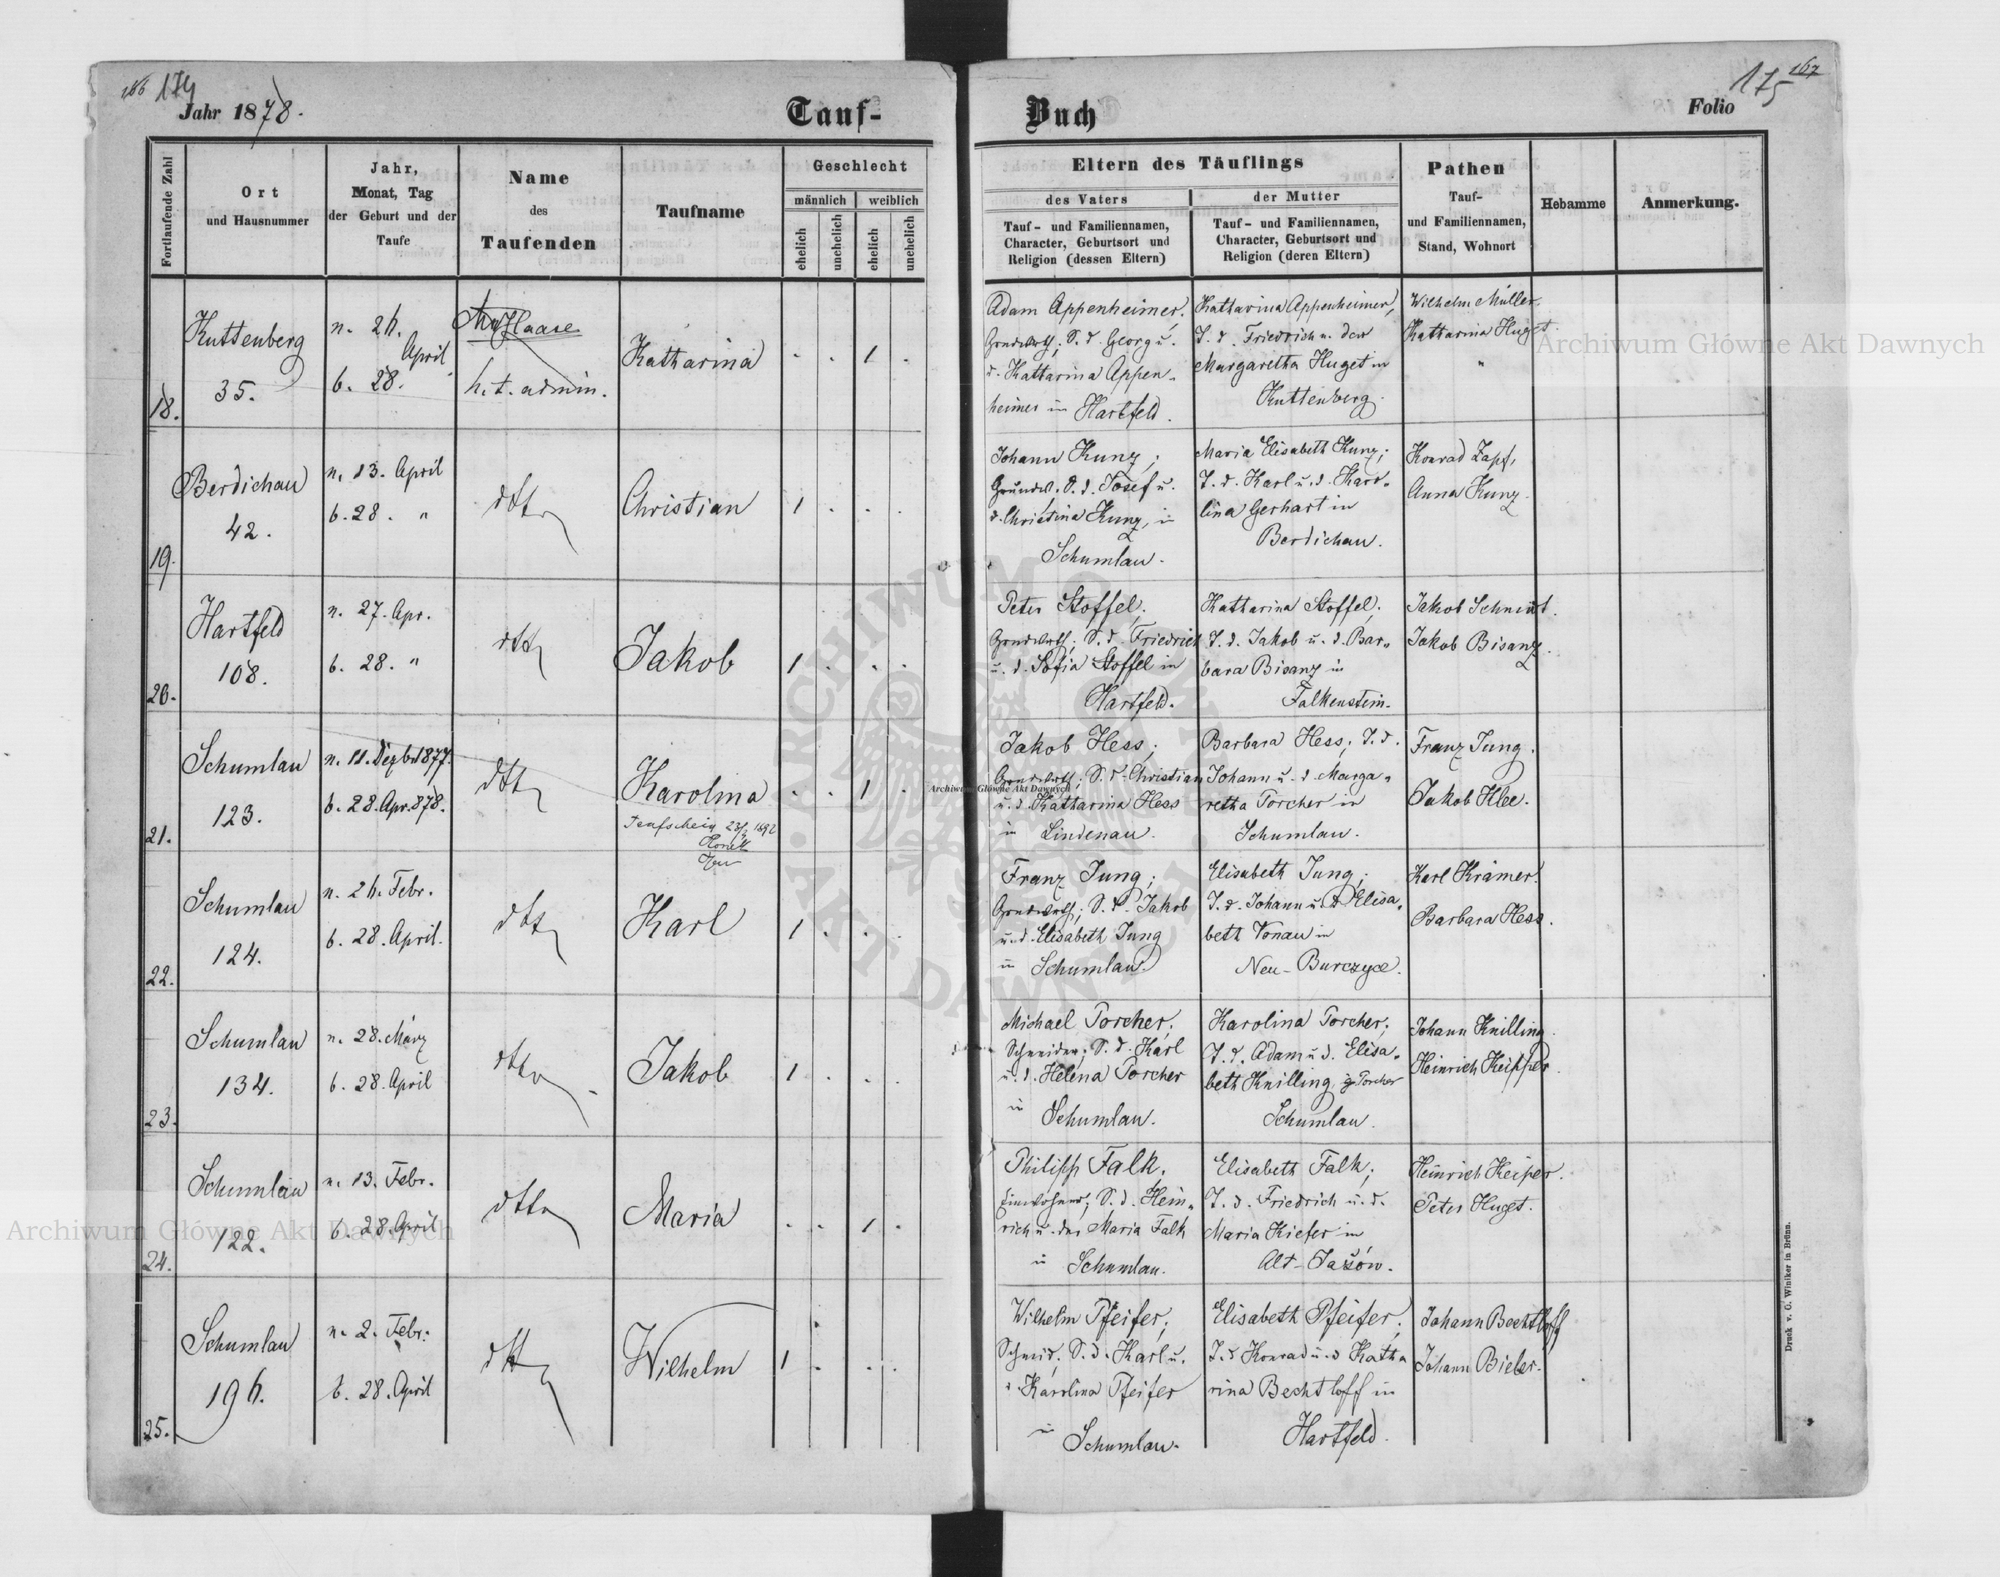 166 174
Jahr 1878.
Tauf-
Buch
175 167
Folio
Fortlaufende Zahl
Ort
und Hausnummer
Jahr,
Monat, Tag
der Geburt und der
Taufe
Name
des
Taufenden
Taufname
Geschlecht
männlich
weiblich
ehelich
unehelich
ehelich
unehelich
Eltern des Täuflings
des Vaters
Tauf- und Familiennamen,
Character, Geburtsort und
Religion (dessen Eltern)
der Mutter
Tauf- und Familiennamen,
Character, Geburtsort und
Religion (deren Eltern)
Pathen
Tauf-
und Familiennamen,
Stand, Wohnort
Hebamme
Anmerkung.
18.
Kuttenberg
35.
n. 26.
April
b. 28.
h. t. admin.
Katharina
. . 1 .
Adam Appenheimer,
Grundwirth, S. d. Georg u.
d. Katharina Appen-
heimer in Hartfeld.
Katharina Appenheimer,
T. d. Friedrich u. der
Margaretha Huget in
Kuttenberg.
Wilhelm Müller.
Katharina Huget.
"
19.
Berdichau
42.
n. 13. April
b. 28. "
dtto
Christian
1 . . .
Johann Kunz,
Grundw. S. d. Josef u.
d. Christina Kunz, in
Schumlau.
Maria Elisabeth Kunz;
T. d. Karl u. d. Karo-
lina Gerhart in
Berdichau.
Konrad Zapf,
Anna Kunz.
20.
Hartfeld
108.
n. 27. Apr.
b. 28. "
dtto
Jakob
1 . . .
Peter Stoffel,
Grndwirth; S. d. Friedrich
u. d. Sofia Stoffel in
Hartfeld.
Katharina Stoffel,
T. d. Jakob u. d. Bar-
bara Bisanz in
Falkenstein.
Jakob Schmidt.
Jakob Bisanz.
21.
Schumlau
123.
n. 11. Dezbr 1877.
b. 28. Apr. 878.
dtto
Karolina
Taufschein 1892
. . 1 .
Jakob Hess;
Grndwirth; S. d. Christian
u. d. Katharina Hess
in Lindenau.
Barbara Hess, T. d.
Johann u. d. Marga-
retha Porcher in
Schumlau.
Franz Jung.
Jakob Klee.
22.
Schumlau
124.
n. 26. Febr.
b. 28. April.
dtto
Karl
1 . . .
Franz Jung;
Grndwirth; S. d. Jakob
u. d. Elisabeth Jung
in Schumlau.
Elisabeth Jung;
T. d. Johann u. d. Elisa-
beth Vonau in
Neu-Burczyce.
Karl Krämer.
Barbara Hess.
23.
Schumlau
134.
n. 28. März
b. 28. April
dtto
Jakob
1 . . .
Michael Porcher,
Schneider; S. d. Karl
u. d. Helena Porcher
in Schumlau.
Karolina Porcher;
T. d. Adam u. d. Elisa-
beth Knilling, Porcher
Schumlau.
Johann Knilling.
Heinrich Keipper.
24.
Schumlau
122.
n. 13. Febr.
b. 28. April
dtto
Maria
. . 1 .
Philipp Falk,
Einwohner; S. d. Hein-
rich u. der Maria Falk
in Schumlau.
Elisabeth Falk;
T. d. Friedrich u. d.
Maria Kiefer in
Alt-Jażów.
Heinrich Keiper.
Peter Huget.
25.
Schumlau
196.
n. 2. Febr.
b. 28. April
dtto
Wilhelm
1 . . .
Wilhelm Pfeifer;
Schmid, S. d. Karl u.
d. Karolina Pfeifer
in Schumlau.
Elisabeth Pfeifer,
T. d. Konrad u. d. Katha-
rina Bechtloff in
Hartfeld.
Johann Bechtloff
Johann Bieler.
Druck v. C. Winiker in Brünn.
Archiwum Główne Akt Dawnych
Archiwum Główne Akt Dawnych
Archiwum Główne Akt Dawnych
ARCHIWUM GŁÓWNE AKT DAWNYCH